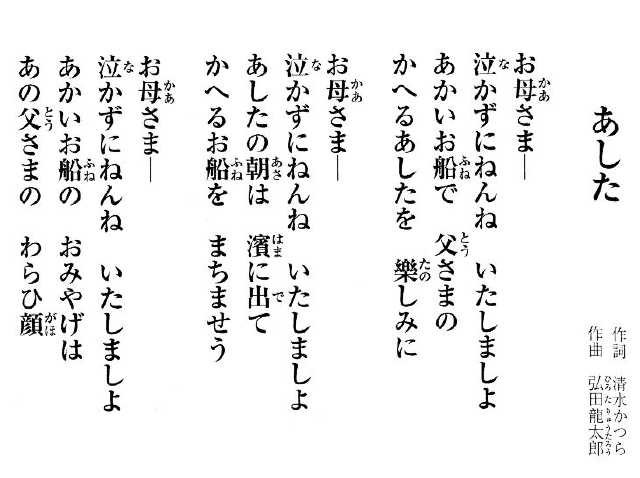 あした
作詞 清水かつら
作曲 弘田龍太郎
お母さま―
泣かずにねんね いたしましよ
あかいお船で 父さまの
かへるあしたを 樂しみに
お母さま―
泣かずにねんね いたしましよ
あしたの朝は 濱に出て
かへるお船を まちませう
お母さま―
泣かずにねんね いたしましよ
あかいお船の おみやげは
あの父さまの わらひ顔